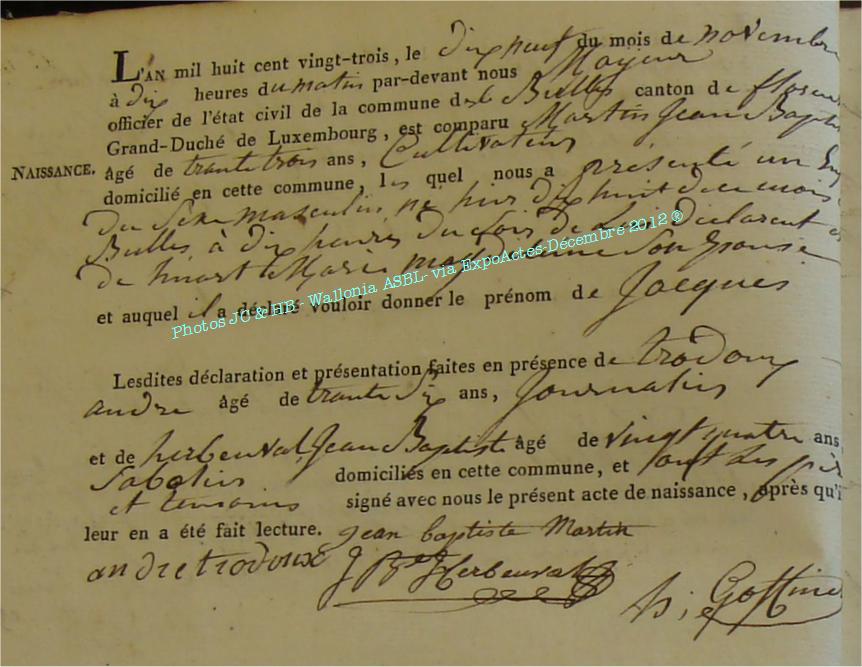 L'AN mil huit cent vingt-trois, le dix neuf du mois de novembre
à dix heures du matin par-devant nous Mayeur
officier de l'état civil de la commune de Bulles canton de
Grand-Duché de Luxembourg, est comparu Martin Jean Baptis
NAISSANCE. âgé de trante trois ans, Cultivateur
domicilié en cette commune, lequel nous a présenté un
du Sexe masculin né hier dix huit de ce mois
Bulles à dix heures du soir de lui déclarent
de Marie magdelaine Son Epouse
et auquel il a déclaré vouloir donner le prénom de Jacques
Photos JC & HB - Wallonia ASBL- via ExpoActes-Décembre 2012 ®
Lesdites déclaration et présentation faites en présence de trodoux
andre âgé de trante Six ans, Journalier
et de herbeuval Jean Baptiste âgé de vingt quatre ans,
Sabotier domiciliés en cette commune, et ont les
et temoins signé avec nous le présent acte de naissance, après qu'i
leur en a été fait lecture. jean baptiste Martin
andre trodoux J Bte Herbeuval
Goffinet